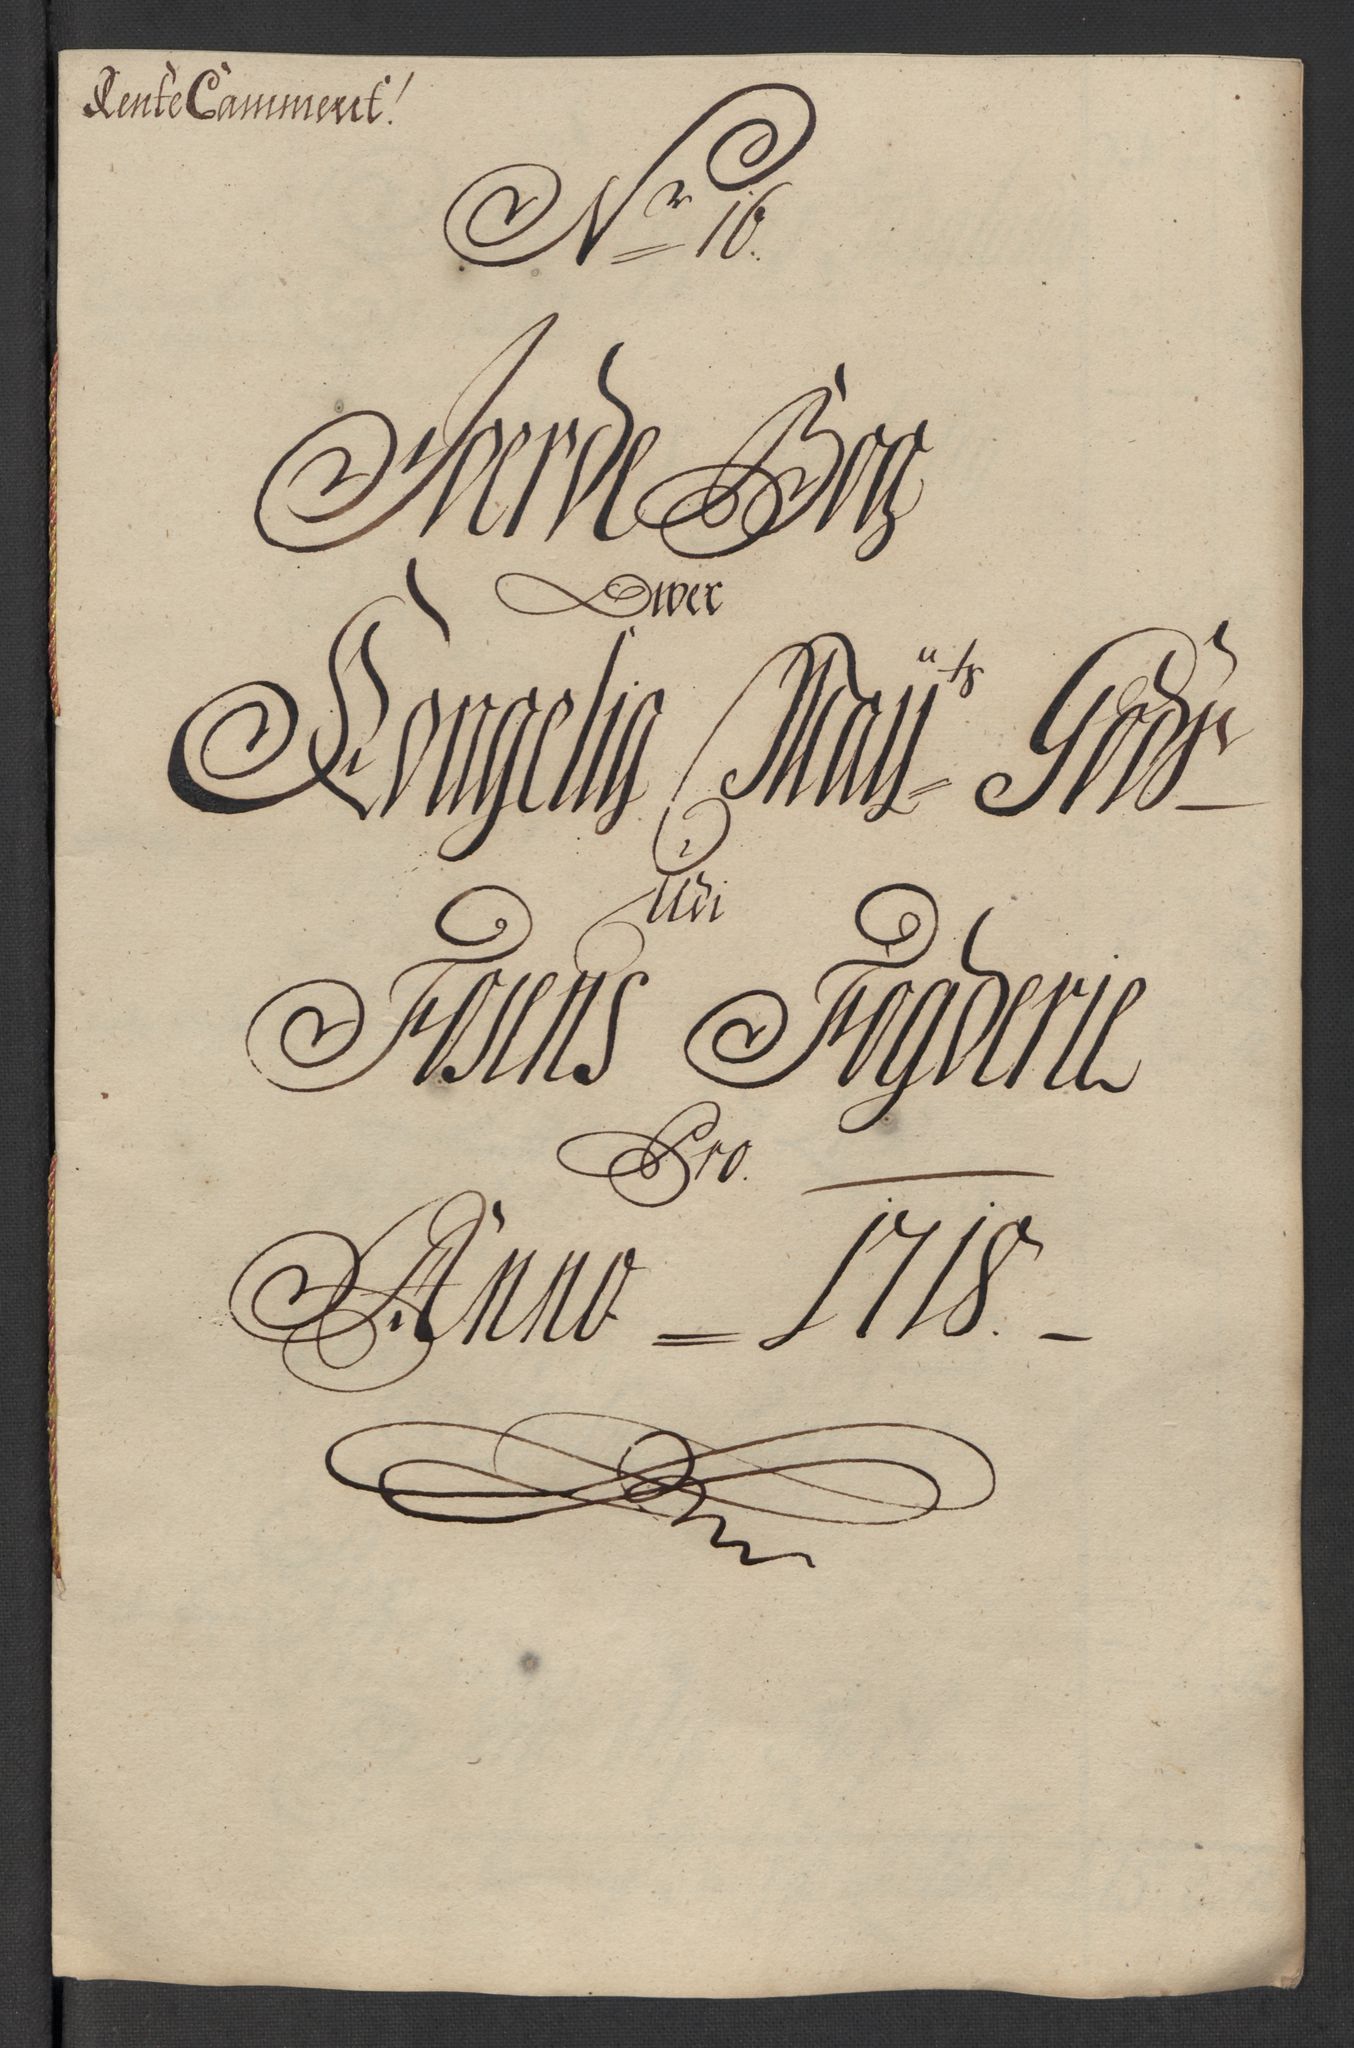 RenteCammeret!
Nr 16.
Joerde Bog
Over
Kongelig Mayts Gods
Udi
Fosens Fogderie
Pro.
Anno = 1718. -